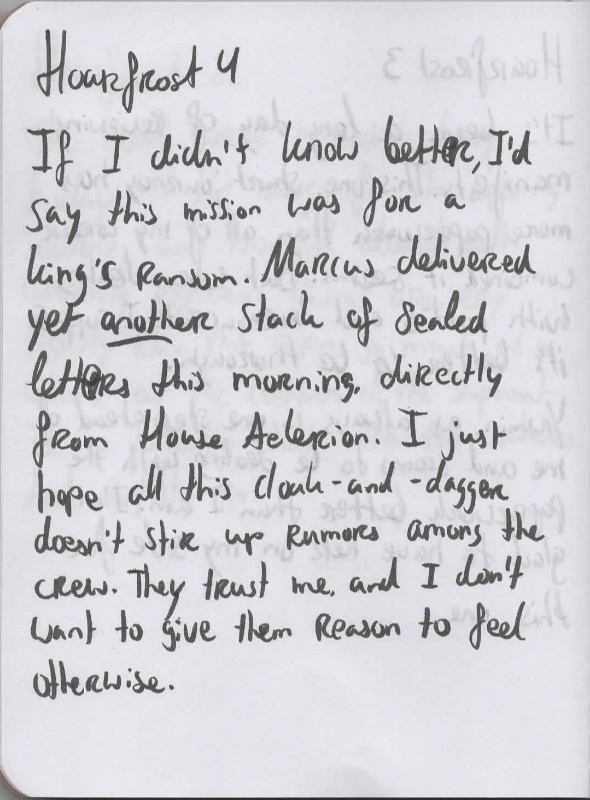 Hoarfrost 4
If I didn't know better, I'd
say this mission was for a
king's ransom. Marcus delivered
yet another stack of sealed
letters this morning, directly
from House Aelerion. I just
hope all this cloak-and-dagger
doesn't stir up rumors among the
crew. They trust me, and I don't
want to give them reason to feel
otherwise.